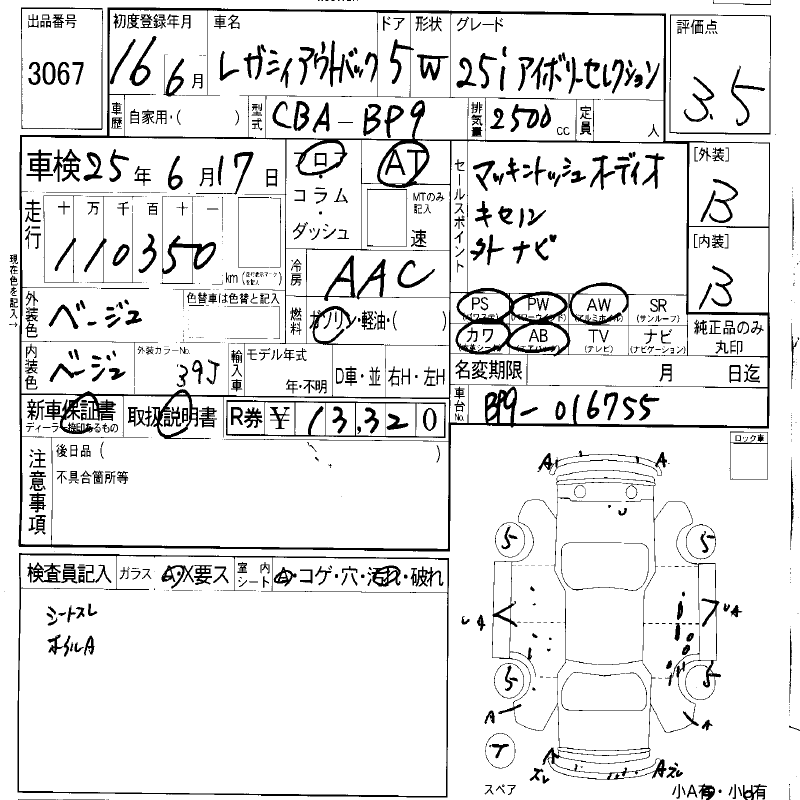 出品番号
3067
初度登録年月
16 6月
車名
レガシィアウトバック
ドア
5
形状
W
グレード
25i アイボリーセレクション
評価点
3.5
車歴
自家用・( )
型式
CBA-BP9
排気量
2500cc
定員
人
車検 25年 6月17日
フロア
・
コラム
・
ダッシュ
AT
MTのみ記入
速
セールスポイント
マッキントッシュオーディオ
キセノン
外ナビ
[外装]
B
[内装]
B
純正品のみ
丸印
走行
十 万 千 百 十 一
110350
km
現在色を記入→
冷房
AAC
外装色
ベージュ
色替車は色替と記入
燃料
ガソリン・軽油・( )
PS
PW
AW
(アルミホイル)
SR
(サンルーフ)
カワ
AB
TV
(テレビ)
ナビ
(ナビゲーション)
内装色
ベージュ
外装カラーNo.
39J
輸入車
モデル年式
年・不明
D車・並
右H・左H
名変期限
月 日迄
車台No.
BP9-016755
新車保証書
取扱説明書
R券 ¥ 13,320
注意事項
後日品 ( )
不具合箇所等
ロック車
検査員記入
ガラス A・X要ス
室内シート A・コゲ・穴・汚れ・破れ
シートスレ
ホイルA
A
A
5
5
A
A
5
5
A
A
T
A
ズレ
Aズレ
スペア
小A有・小U有